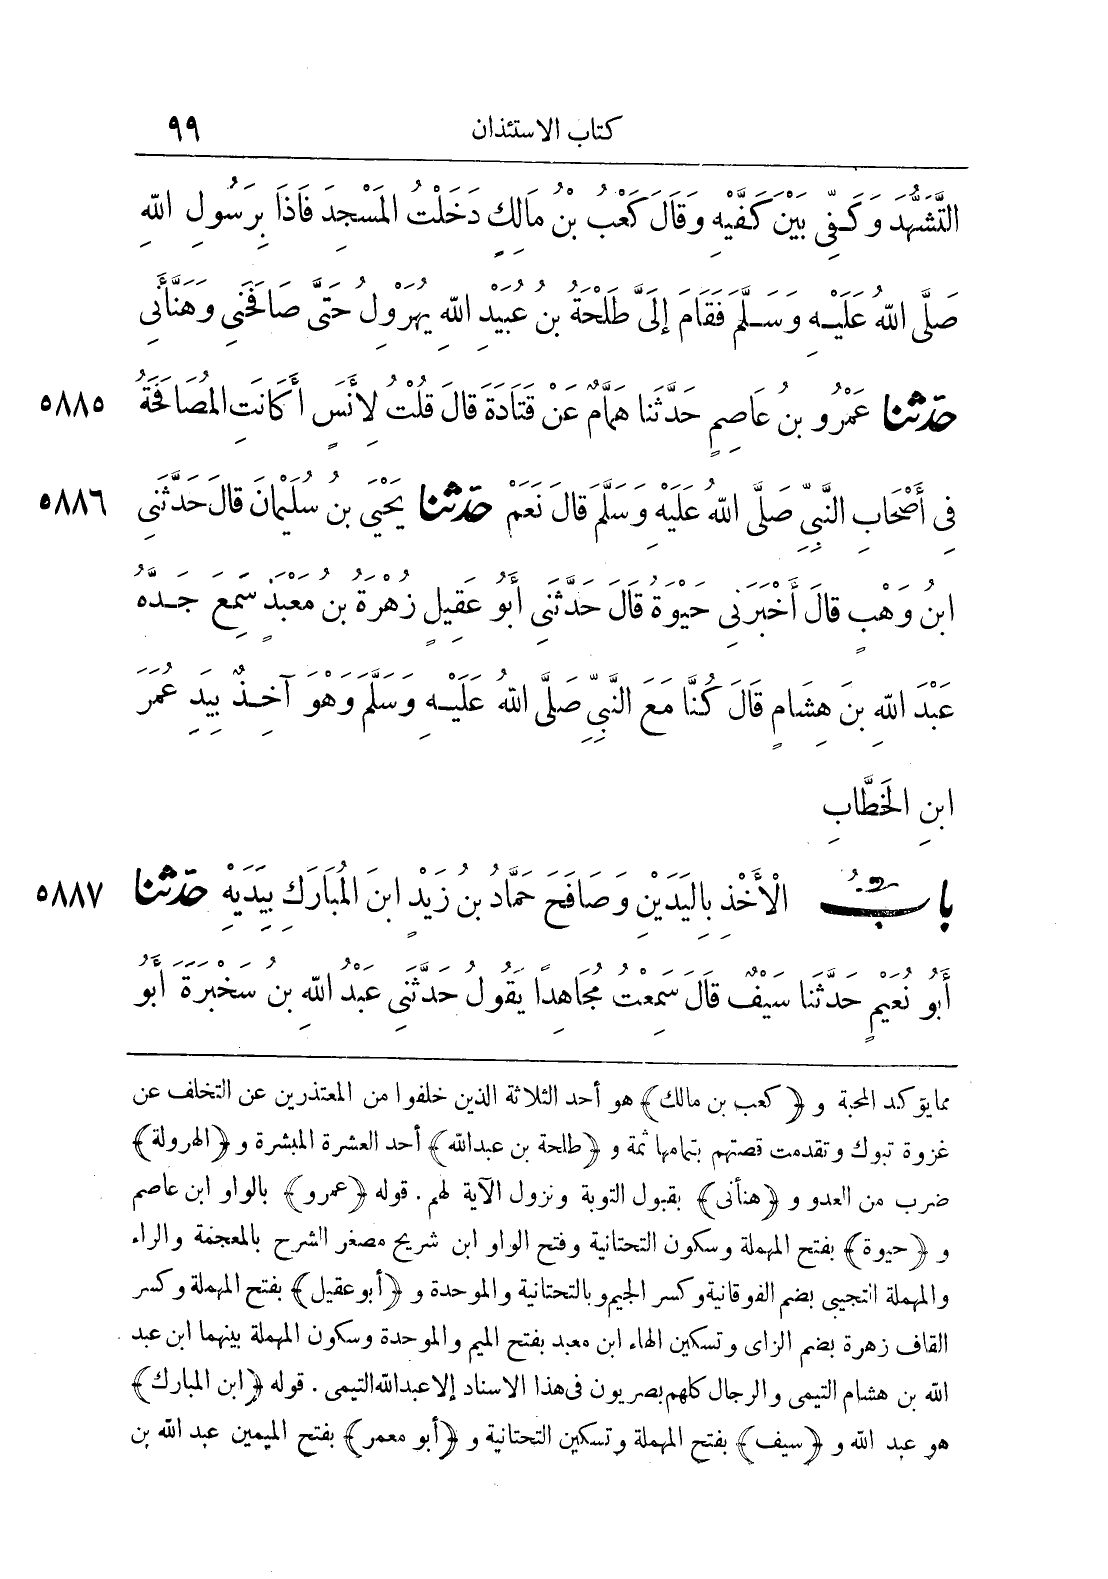 كتاب الاستئذان ٩٩
التَّشَهُّدَ وَكَفِّى بَيْنَ كَفَّيْهِ وَقَالَ كَعْبُ بْنُ مَالِكٍ دَخَلْتُ الْمَسْجِدَ فَاذَا بِرَسُولِ اللهِ
صَلَّى اللهُ عَلَيْهِ وَسَلَّمَ فَقَامَ إلَىَّ طَلْحَةُ بْنُ عُبَيْدِ اللهِ يُهَرْوِلُ حَتَّى صَافَحَنِى وَهَنَّأَنِى
٥٨٨٥ حدثنا عَمْرُو بْنُ عَاصِمٍ حَدَّثَنَا هَمَّامٌ عَنْ قَتَادَةَ قَالَ قُلْتُ لِأَنَسٍ أَكَانَتِ الْمُصَافَحَةُ
٥٨٨٦ فِى أَصْحَابِ النَّبِىِّ صَلَّى اللهُ عَلَيْهِ وَسَلَّمَ قَالَ نَعَمْ حدثنا يَحْيَى بْنُ سُلَيْمَانَ قَالَ حَدَّثَنِى
ابْنُ وَهْبٍ قَالَ أَخْبَرَنِى حَيْوَةُ قَالَ حَدَّثَنِى أَبُو عَقِيلٍ زُهْرَةُ بْنُ مَعْبَدٍ سَمِعَ جَدَّهُ
عَبْدَ اللهِ بْنَ هِشَامٍ قَالَ كُنَّا مَعَ النَّبِىِّ صَلَّى اللهُ عَلَيْهِ وَسَلَّمَ وَهُوَ آخِذٌ بِيَدِ عُمَرَ
ابْنِ الْخَطَّابِ
٥٨٨٧ بابُ الْأَخْذِ بِالْيَدَيْنِ وَصَافَحَ حَمَّادُ بْنُ زَيْدٍ ابْنَ الْمُبَارَكِ بِيَدَيْهِ حدثنا
أَبُو نُعَيْمٍ حَدَّثَنَا سَيْفٌ قَالَ سَمِعْتُ مُجَاهِداً يَقُولُ حَدَّثَنِى عَبْدُ اللهِ بْنُ سَخْبَرَةَ أَبُو
مما يؤكد المحبة و (كعب بن مالك) هو أحد الثلاثة الذين خلفوا من المعتذرين عن التخلف عن
غزوة تبوك وتقدمت قصتهم بتمامها ثمة و (طلحة بن عبدالله) أحد العشرة المبشرة و (الهرولة)
ضرب من العدو و (هنأنى) بقبول التوبة ونزول الآية لهم. قوله (عمرو) بالواو ابن عاصم
و (حيوة) بفتح المهملة وسكون التحتانية وفتح الواو ابن شريح مصغر الشرح بالمعجمة والراء
والمهملة التجيبى بضم الفوقانية وكسر الجيم وبالتحتانية والموحدة و (أبو عقيل) بفتح المهملة وكسر
القاف زهرة بضم الزاى وتسكين الهاء ابن معبد بفتح الميم والموحدة وسكون المهملة بينهما ابن عبد
الله بن هشام التيمى والرجال كلهم بصريون فى هذا الاسناد إلا عبدالله التيمى. قوله (ابن المبارك)
هو عبد الله و (سيف) بفتح المهملة وتسكين التحتانية و (أبو معمر) بفتح الميمين عبد الله بن